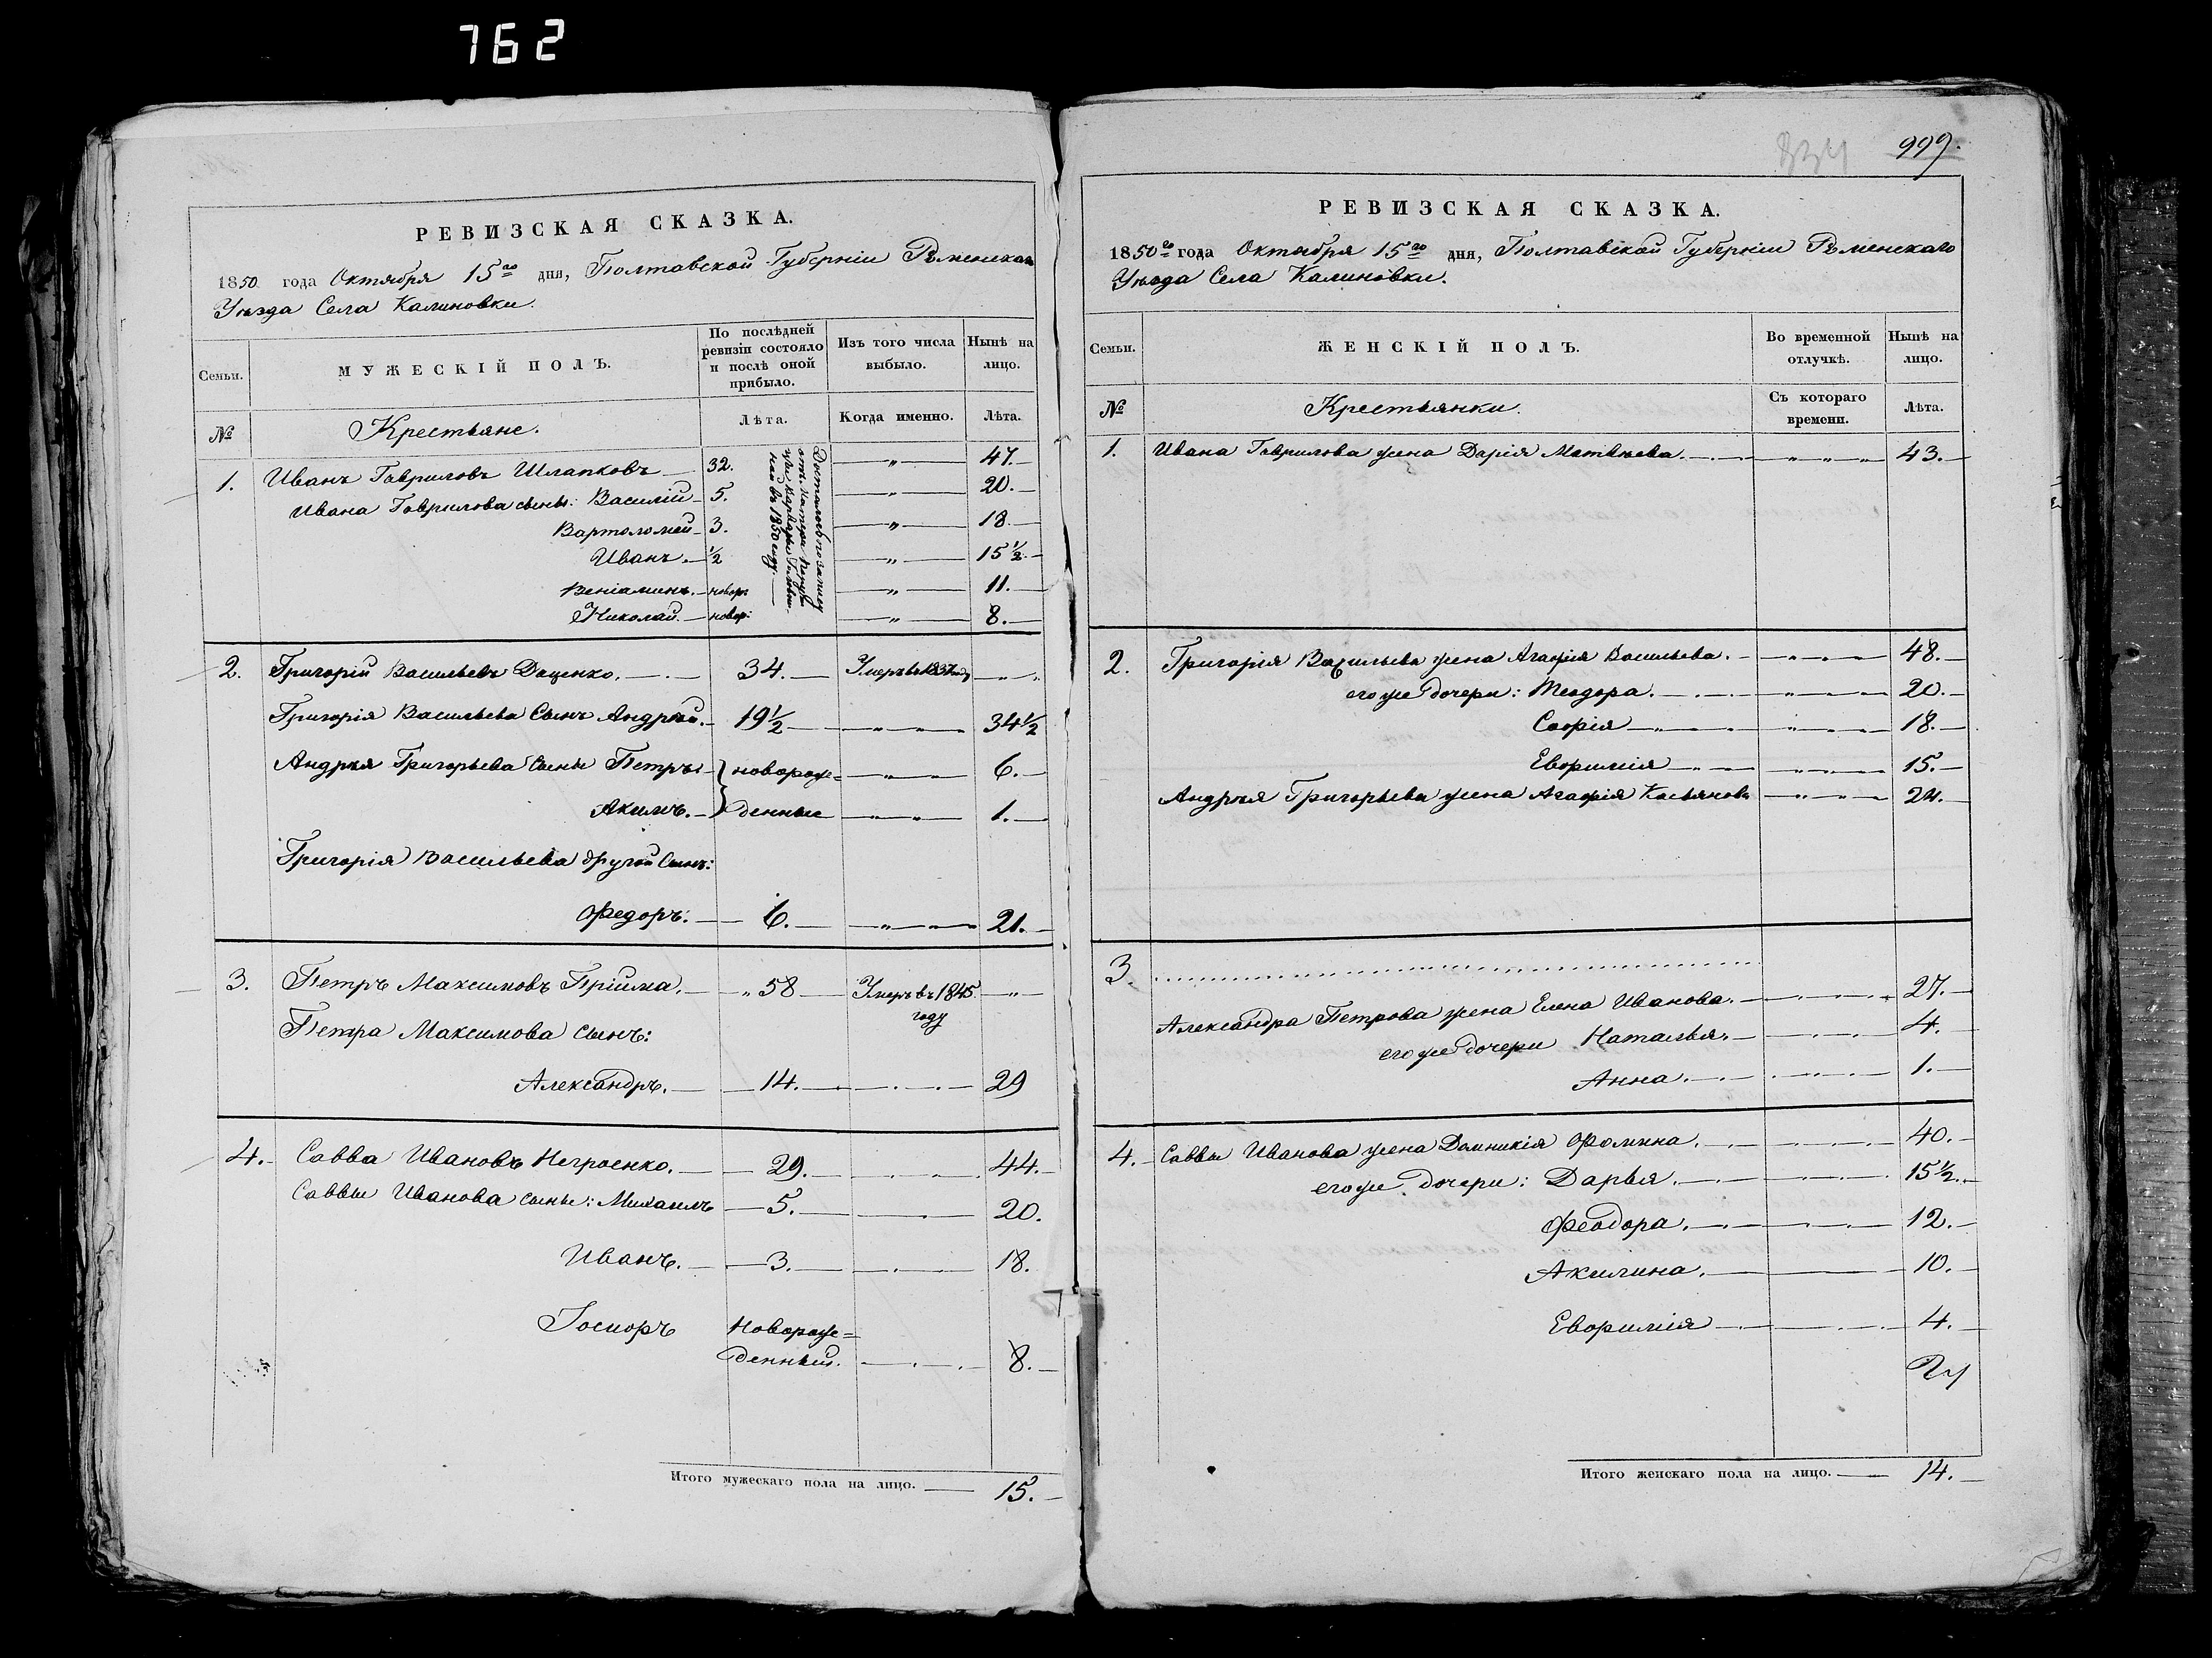 762
РЕВИЗСКАЯ СКАЗКА.
1850 года Октября 15го дня, Полтавской Губерніи Роменскаго
Уѣзда Села Калиновки.
Семьи.
МУЖЕСКІЙ ПОЛЪ.
По послѣдней ревизіи состояло и послѣ оной прибыло.
Изъ того числа выбыло.
Нынѣ на лицо.
№
Крестьяне.
Лѣта.
Когда именно.
Лѣта.
1. Иванъ Гавриловъ Шлапковъ 32. „ 47.
Ивана Гаврилова сыны: Василій 5. 20.
Вартоломей 3. „ 18.
Иванъ. ½ „ 15½
Веніаминъ. новор: „ 11.
Николай. новор: „ 8.
Достались по
отъ
въ 1850 году
2. Григорій Васильевъ Даценко. 34. Умеръ въ 1837 году „
Григорія Васильева Сынъ Андрей. 19½ „ „ 34½
Андрея Григорьева Сыны Петръ новорож= „ 6.
Акимъ. денные „ „ 1.
Григорія Васильева другой Сынъ:
Федоръ. 6. „ „ 21.
3. Петръ Максимовъ Пріима. „ 58 Умеръ въ 1845 „
году
Петра Максимова Сынъ:
Александръ. 14. 29
4. Савва Ивановъ Негроенко. 29. 44.
Саввы Иванова сыны: Михаилъ 5. 20.
Иванъ. 3. 18.
Іосифъ Новорож=
денный. 8.
Итого мужескаго пола на лицо. 15.
834 999.
РЕВИЗСКАЯ СКАЗКА.
1850го года Октября 15го дня, Полтавской Губерніи Роменскаго
Уѣзда Села Калиновки.
Семьи.
ЖЕНСКІЙ ПОЛЪ.
Во временной отлучкѣ.
Нынѣ на лицо.
№
Крестьянки.
Съ котораго времени.
Лѣта.
1. Ивана Гаврилова жена Дарія Матвѣева. „ „ „ 43.
2. Григорія Васильева жена Агафія Васильева. „ „ 48.
его же дочери: Теодора. „ „ 20.
Софія „ „ 18.
Евфимія „ „ 15.
Андрея Григорьева жена Агафія Касьянова „ „ 24.
3.
Александра Петрова жена Елена Иванова. 27.
его же дочери Наталья. 4.
Анна. 1.
4. Саввы Иванова жена Домникія Фомина. 40.
его же дочери: Дарья. 15½
Феодора. 12.
Акилина. 10.
Евфимія 4.
Итого женскаго пола на лицо. 14.